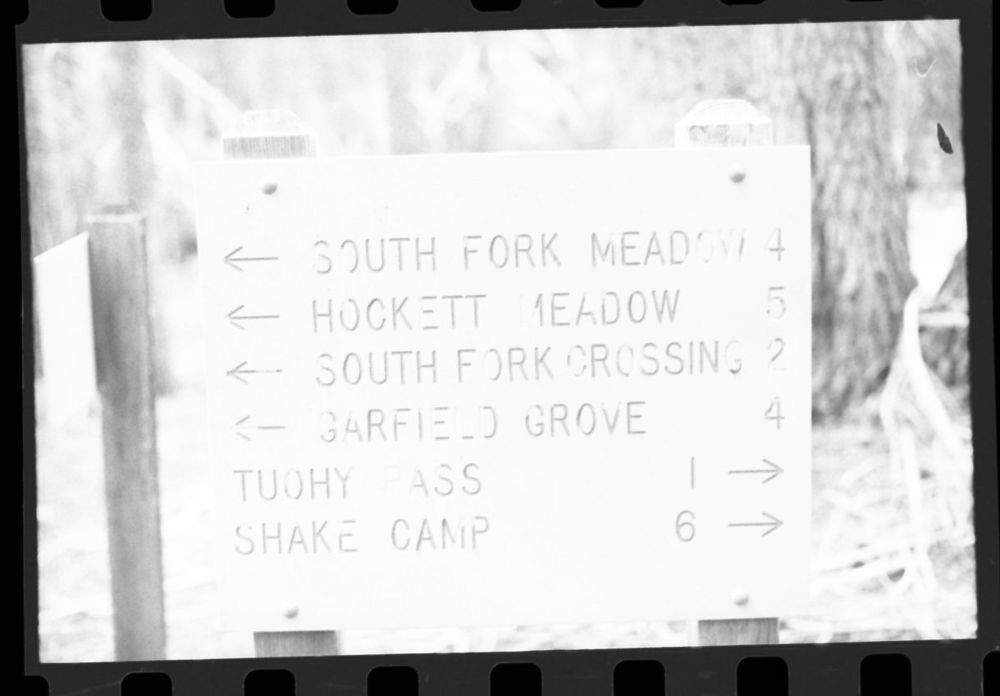 ← SOUTH FORK MEADOW 4
← HOCKETT MEADOW 5
← SOUTH FORK CROSSING 2
← GARFIELD GROVE 4
TUOHY PASS 1 →
SHAKE CAMP 6 →